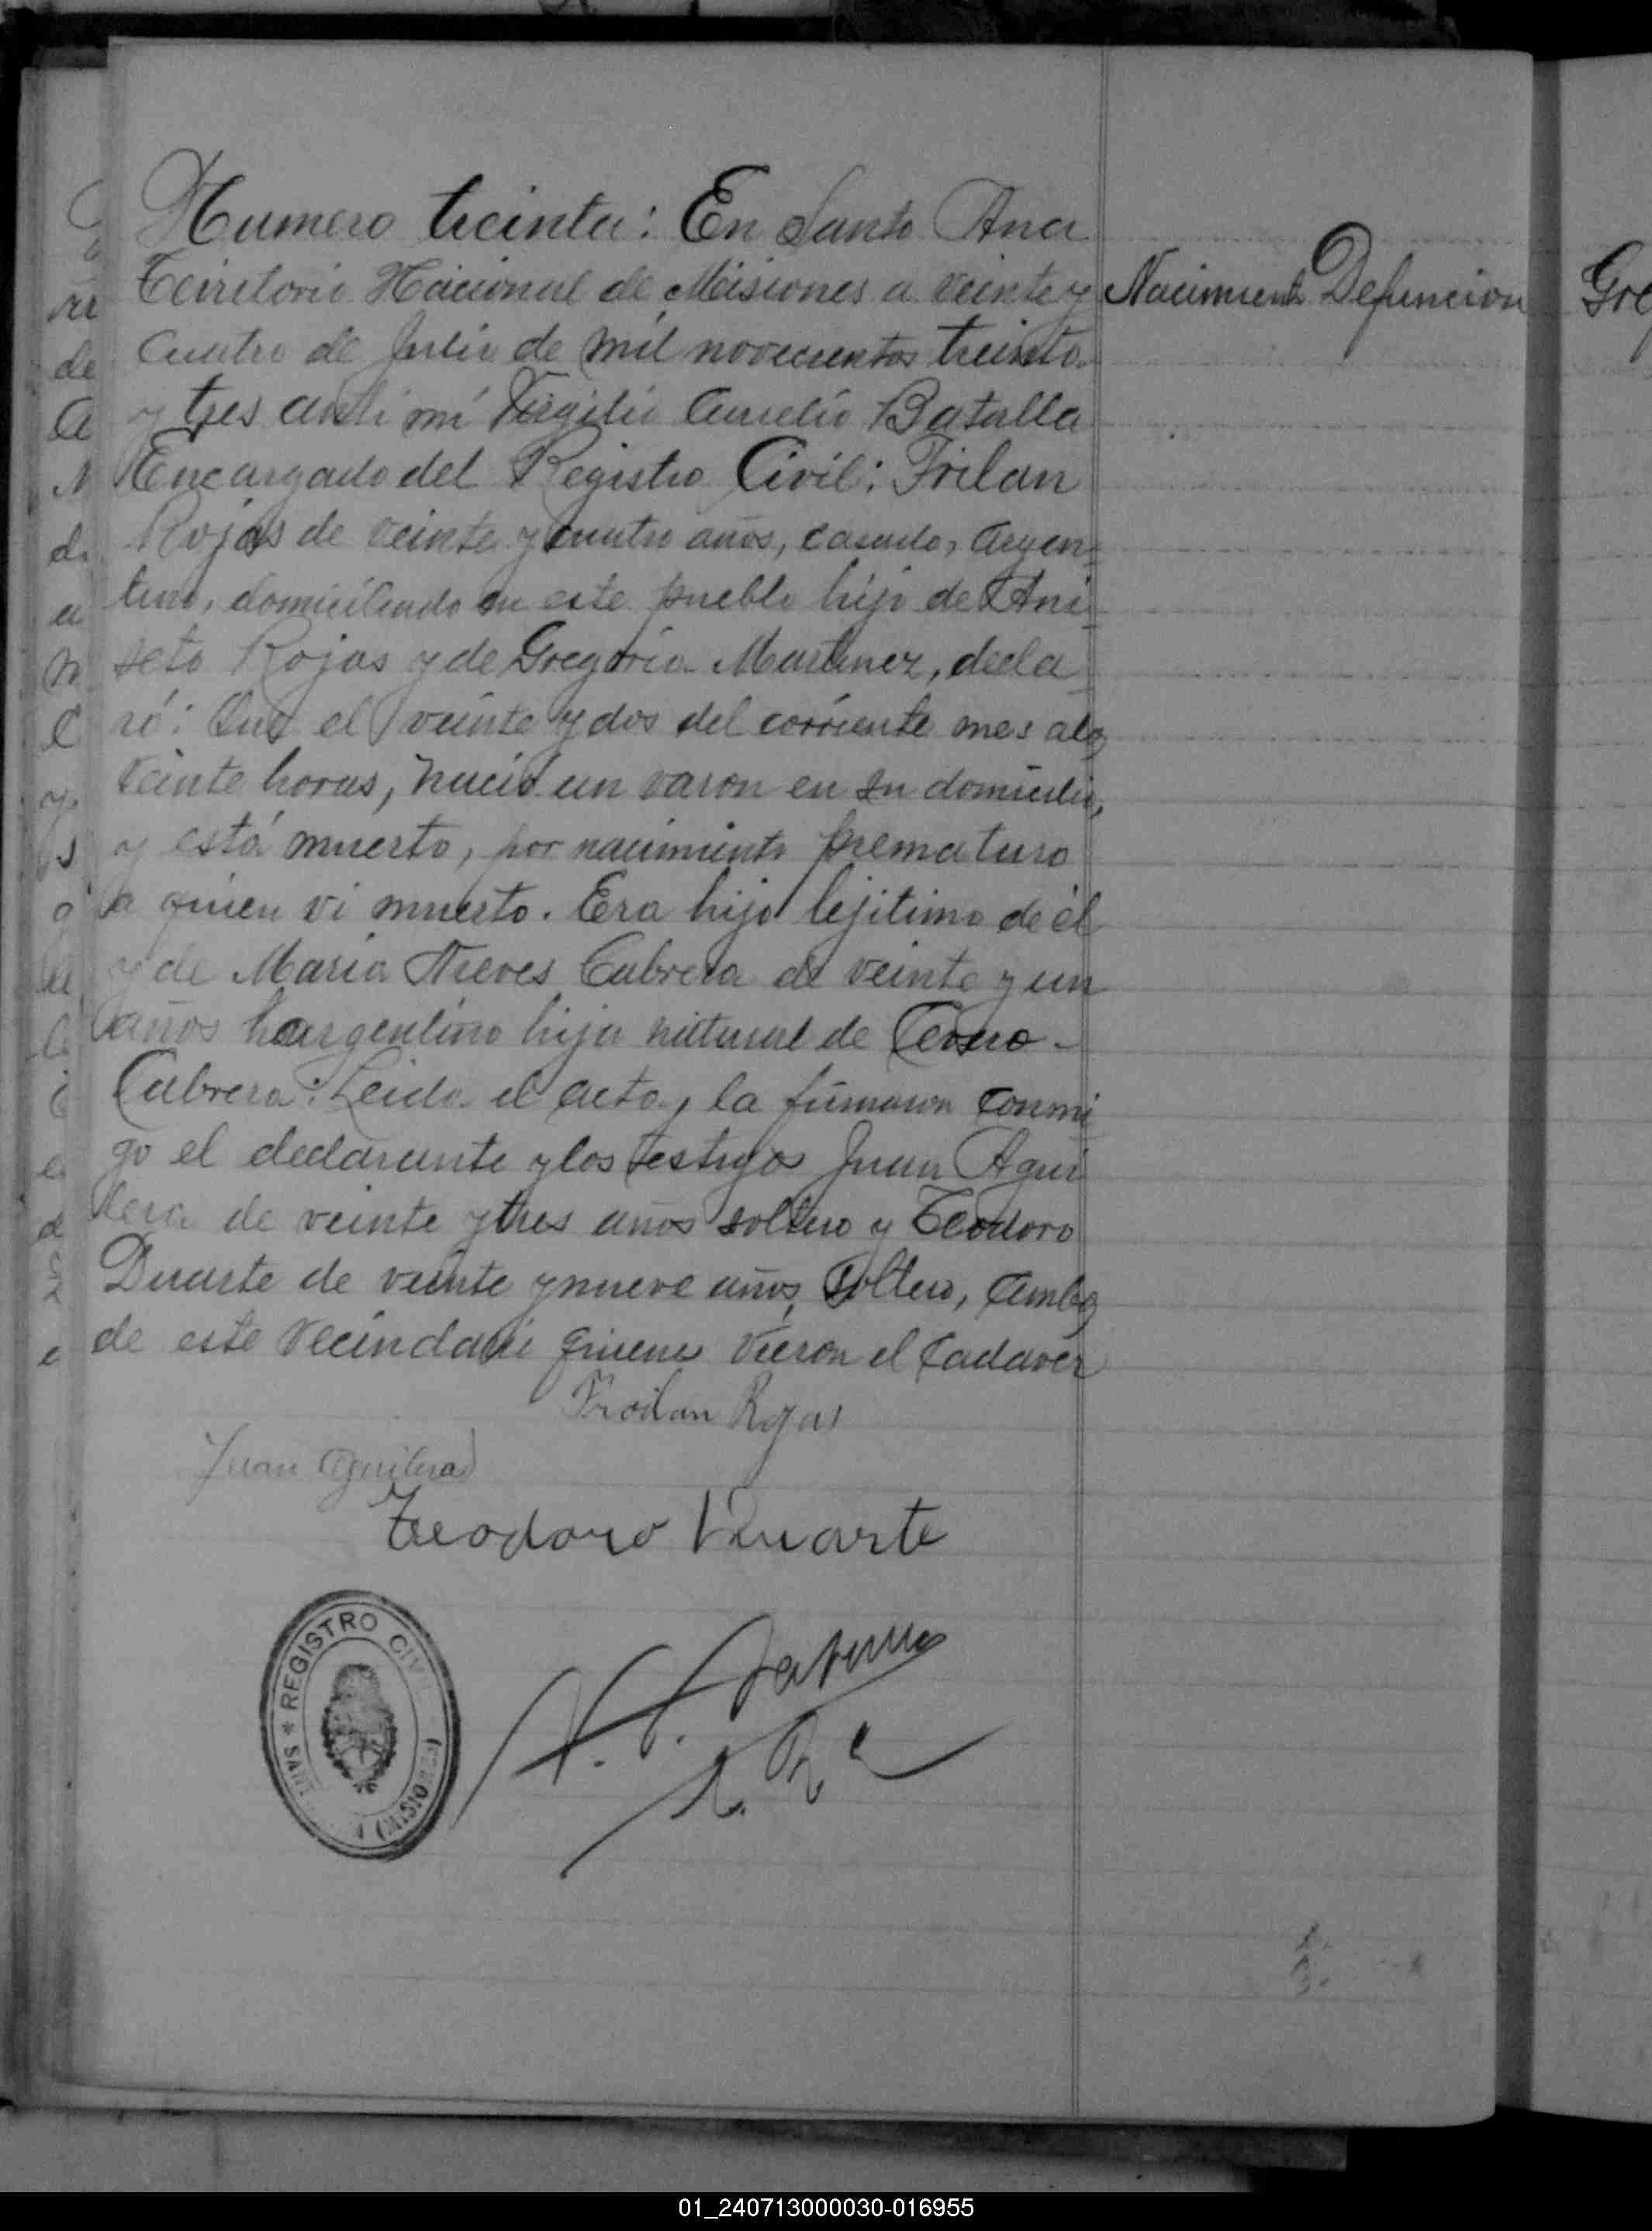 Numero treinta: En Santa Ana
Territorio Nacional de Misiones a veinte y
cuatro de Julio de mil novecientos treinta
y tres ante mi Virgilio Aurelio Batalla
Encargado del Registro Civil: Frilan
Rojas de veinte y cuatro años, casado, argen-
tino, domiciliado en este pueblo hijo de Ani-
seto Rojas y de Gregoria Martinez, decla-
ró: Que el veinte y dos del corriente mes a las
veinte horas, nació un varon en su domicilio,
y está muerto, por nacimiento prematuro
a quien vi muerto. Era hijo lejitimo de él
y de Maria Nieves Cabrera de veinte y un
años argentino hija natural de
Cabrera: Leida el acta, la firmaron conmi-
go el declarante y los testigos Juan Agui-
lera de veinte y tres años soltero y Teodoro
Duarte de veinte y nueve años, soltero, ambos
de este vecindario quienes vieron el cadaver
Nacimiento Defuncion
Froilan Rojas
Juan Aguilera
Teodoro Duarte
REGISTRO CIVIL
SANT A (MISIONES)
Gre
01_240713000030-016955